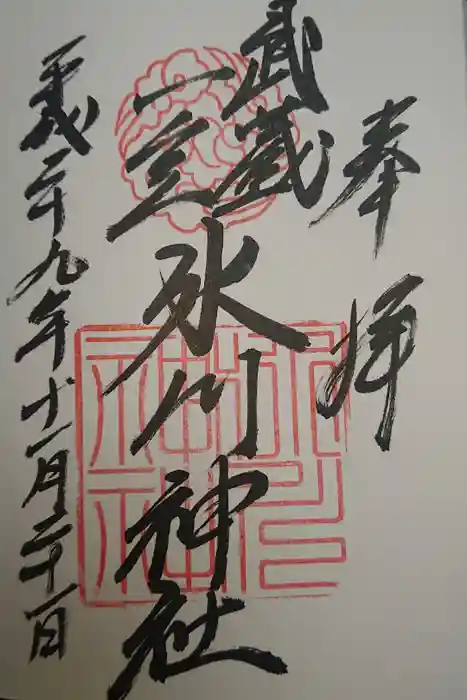 奉拝
武蔵
一宮
氷川神社
平成二十九年十一月二十一日
氷川神社